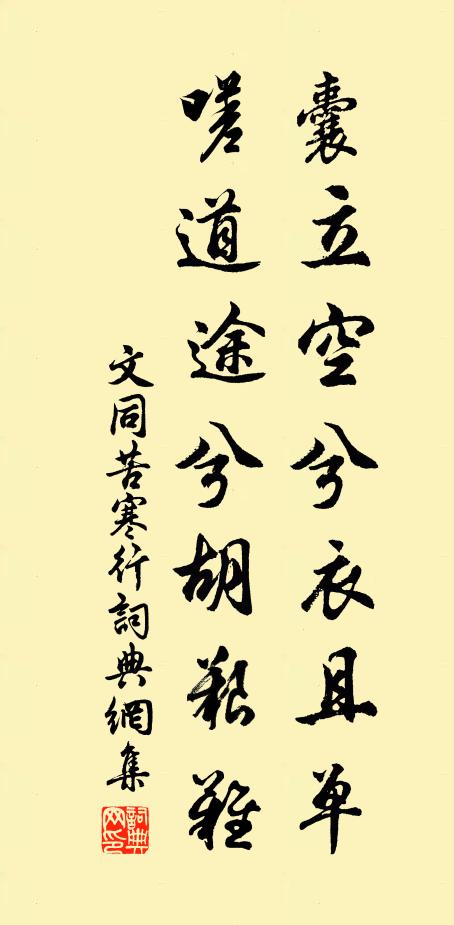 囊立空兮衣且单
嗟道途兮胡艰難
文同苦寒行詞典網集
詞典网印